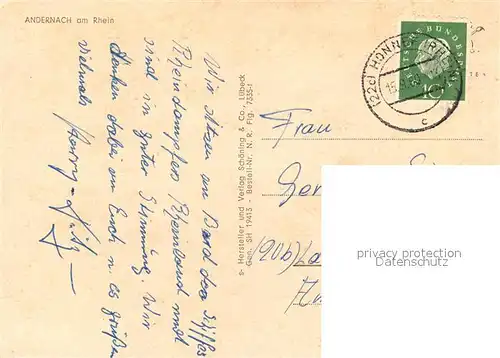 ANDERNACH am Rhein
Wir sitzen an Bord des Schiffes
Rheindampfer Rheinland und
sind in guter Stimmung. Wir
denken dabei an Euch u. es grüßen
vielmals
s- Hersteller und Verlag Schöning & Co., Lübeck
Gen. SH 19413 - Bestell-Nr. N. R. Flg. 7335-t
(22c) HONNEF (RHEIN)
15.
c
DEUTSCHE BUNDESPOST
10
Frau
(20b)
privacy protection
Datenschutz